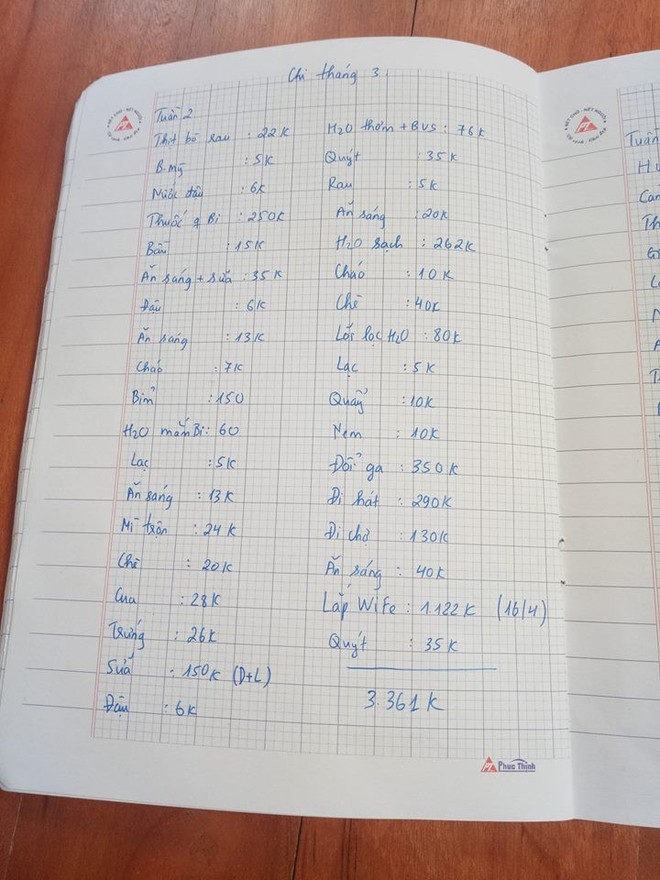 Chi tháng 3
Tuần 2
Thịt bò rau : 22K
B. Mỹ : 5K
Nước đậu : 6K
Thuốc Bi : 250K
Bầu : 15K
Ăn sáng + sữa : 35K
Đậu : 6K
Ăn sáng : 13K
Cháo : 7K
Bỉm : 150
H2O mắm Bi : 60
Lạc : 5K
Ăn sáng : 13K
Mì trộn : 24K
Chè : 20K
Cua : 28K
Trứng : 26K
Sữa : 150K (D+L)
Đậu : 6K
H2O thơm + BVS : 76K
Quýt : 35K
Rau : 5K
Ăn sáng : 20K
H2O sạch : 262K
Cháo : 10K
Chè : 40K
Lõi lọc H2O : 80K
Lạc : 5K
Quẩy : 10K
Nem : 10K
Đổi ga : 350K
Đi hát : 290K
Đi chợ : 130K
Ăn sáng : 40K
Lắp Wife : 1.122K (16/4)
Quýt : 35K
3.361K
Phúc Thịnh
Tuần